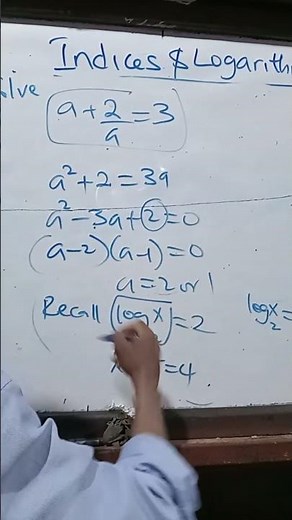 Indices & Logarith
olve
a + 2/a = 3
a² + 2 = 3a
a² - 3a + 2 = 0
(a-2)(a-1) = 0
a = 2 or 1
Recall log x = 2
log₂x =
= 4